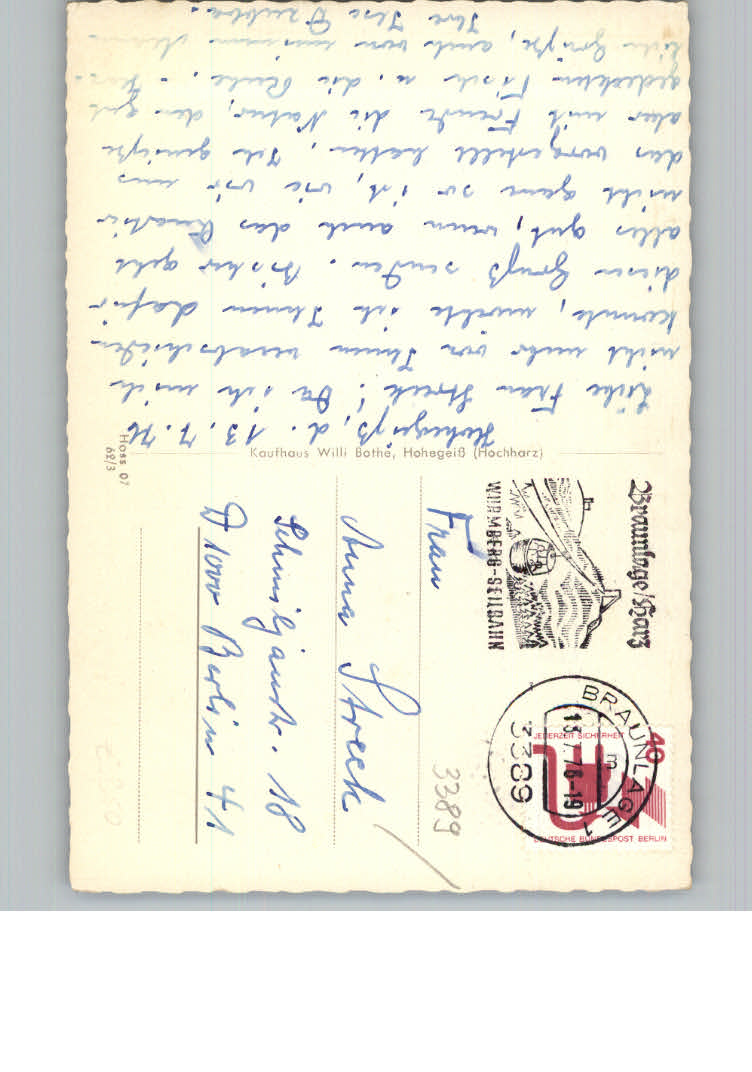 Hohegeiß, d. 13.7.76
Liebe Frau Streck! Da ich mich
nicht mehr von Ihnen verabschieden
konnte, möchte ich Ihnen dafür
diesen Gruß senden. Bisher geht
alles gut, wenn auch das Quartier
nicht ganz so ist, wie wir uns
das vorgestellt hatten. Ich genieße
aber mit Freude die Natur, den gut
gedeckten Tisch u. die Ruhe. -
liebe Grüße, auch von meinem Mann
Ihre Ilse
Kaufhaus Willi Bothe, Hohegeiß (Hochharz)
Hoss 07
62/3
Braunlage/Harz
WURMBERG-SEILBAHN
BRAUNLAGE 1
13.7.76-19
m
3389
JEDERZEIT SICHERHEIT
40
DEUTSCHE BUNDESPOST BERLIN
3389
Frau
Anna Streck
Schmiljanstr. 18
D 1000 Berlin 41